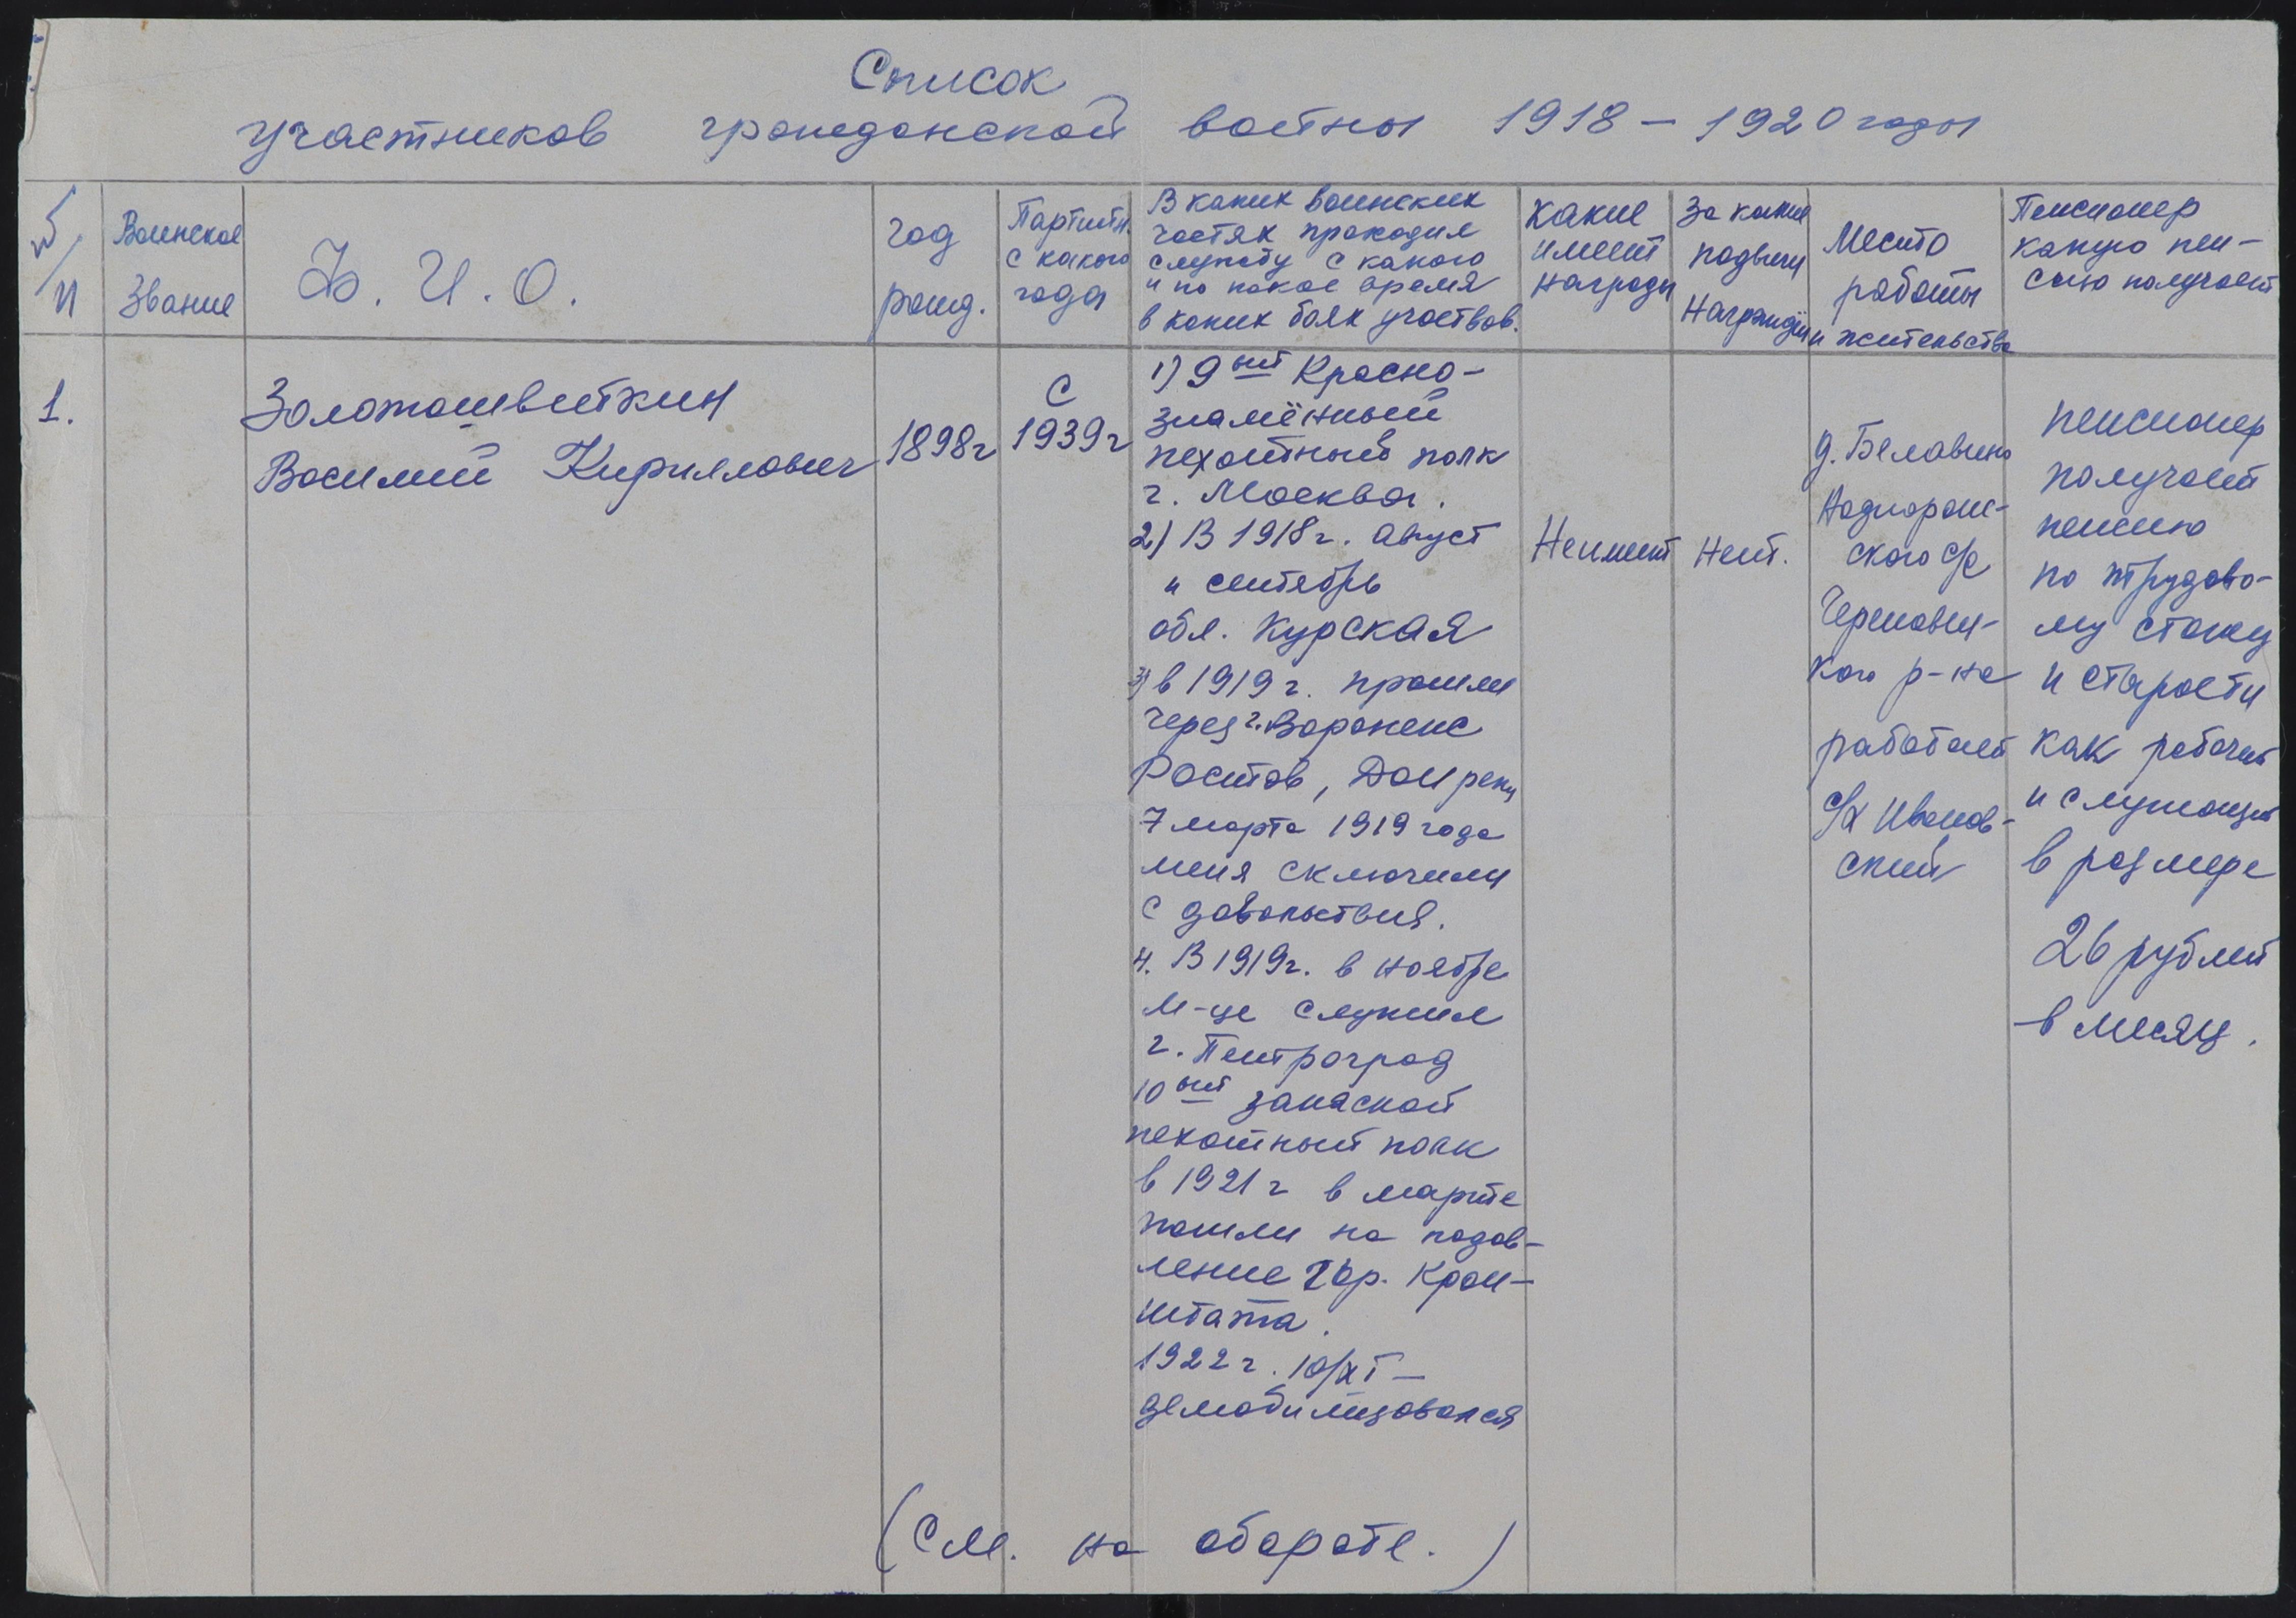 Список
участников гражданской войны 1918 – 1920 годы
№/п
Воинское
звание
Ф. И. О.
год
рожд.
Партийн.
с какого
года
В каких воинских
частях проходил
службу с какого
и по какое время
в каких боях участвов.
какие
имеет
награды
за какие
подвиги
награждён
Место
работы
и жительства
Пенсионер
какую пен-
сию получает
1.
Золотошвейкин
Василий Кириллович
1898г
С
1939г
1) 9ый Красно-
знамённый
пехотный полк
г. Москва.
2) В 1918г. август
и сентябрь
обл. Курская
3) в 1919г. прошли
через г. Воронеж
Ростов, Дон реку
7 марта 1919 года
меня сключили
с довольствия.
4. В 1919г. в ноябре
м-це служил
г. Петроград
10ый запасной
пехотный полк
в 1921г в марте
пошли на подав-
ление гор. Крон-
штата.
1922г. 10/XI –
демобилизовался
Не имеет
нет.
д. Белавино
ского с/с
Черемовси-
кого р-на
работает
с/х Иванов-
ский
пенсионер
получает
пенсию
по трудово-
му стажу
и старости
как рабочий
и служащий
в размере
26 рублей
в месяц.
(См. на обороте.)